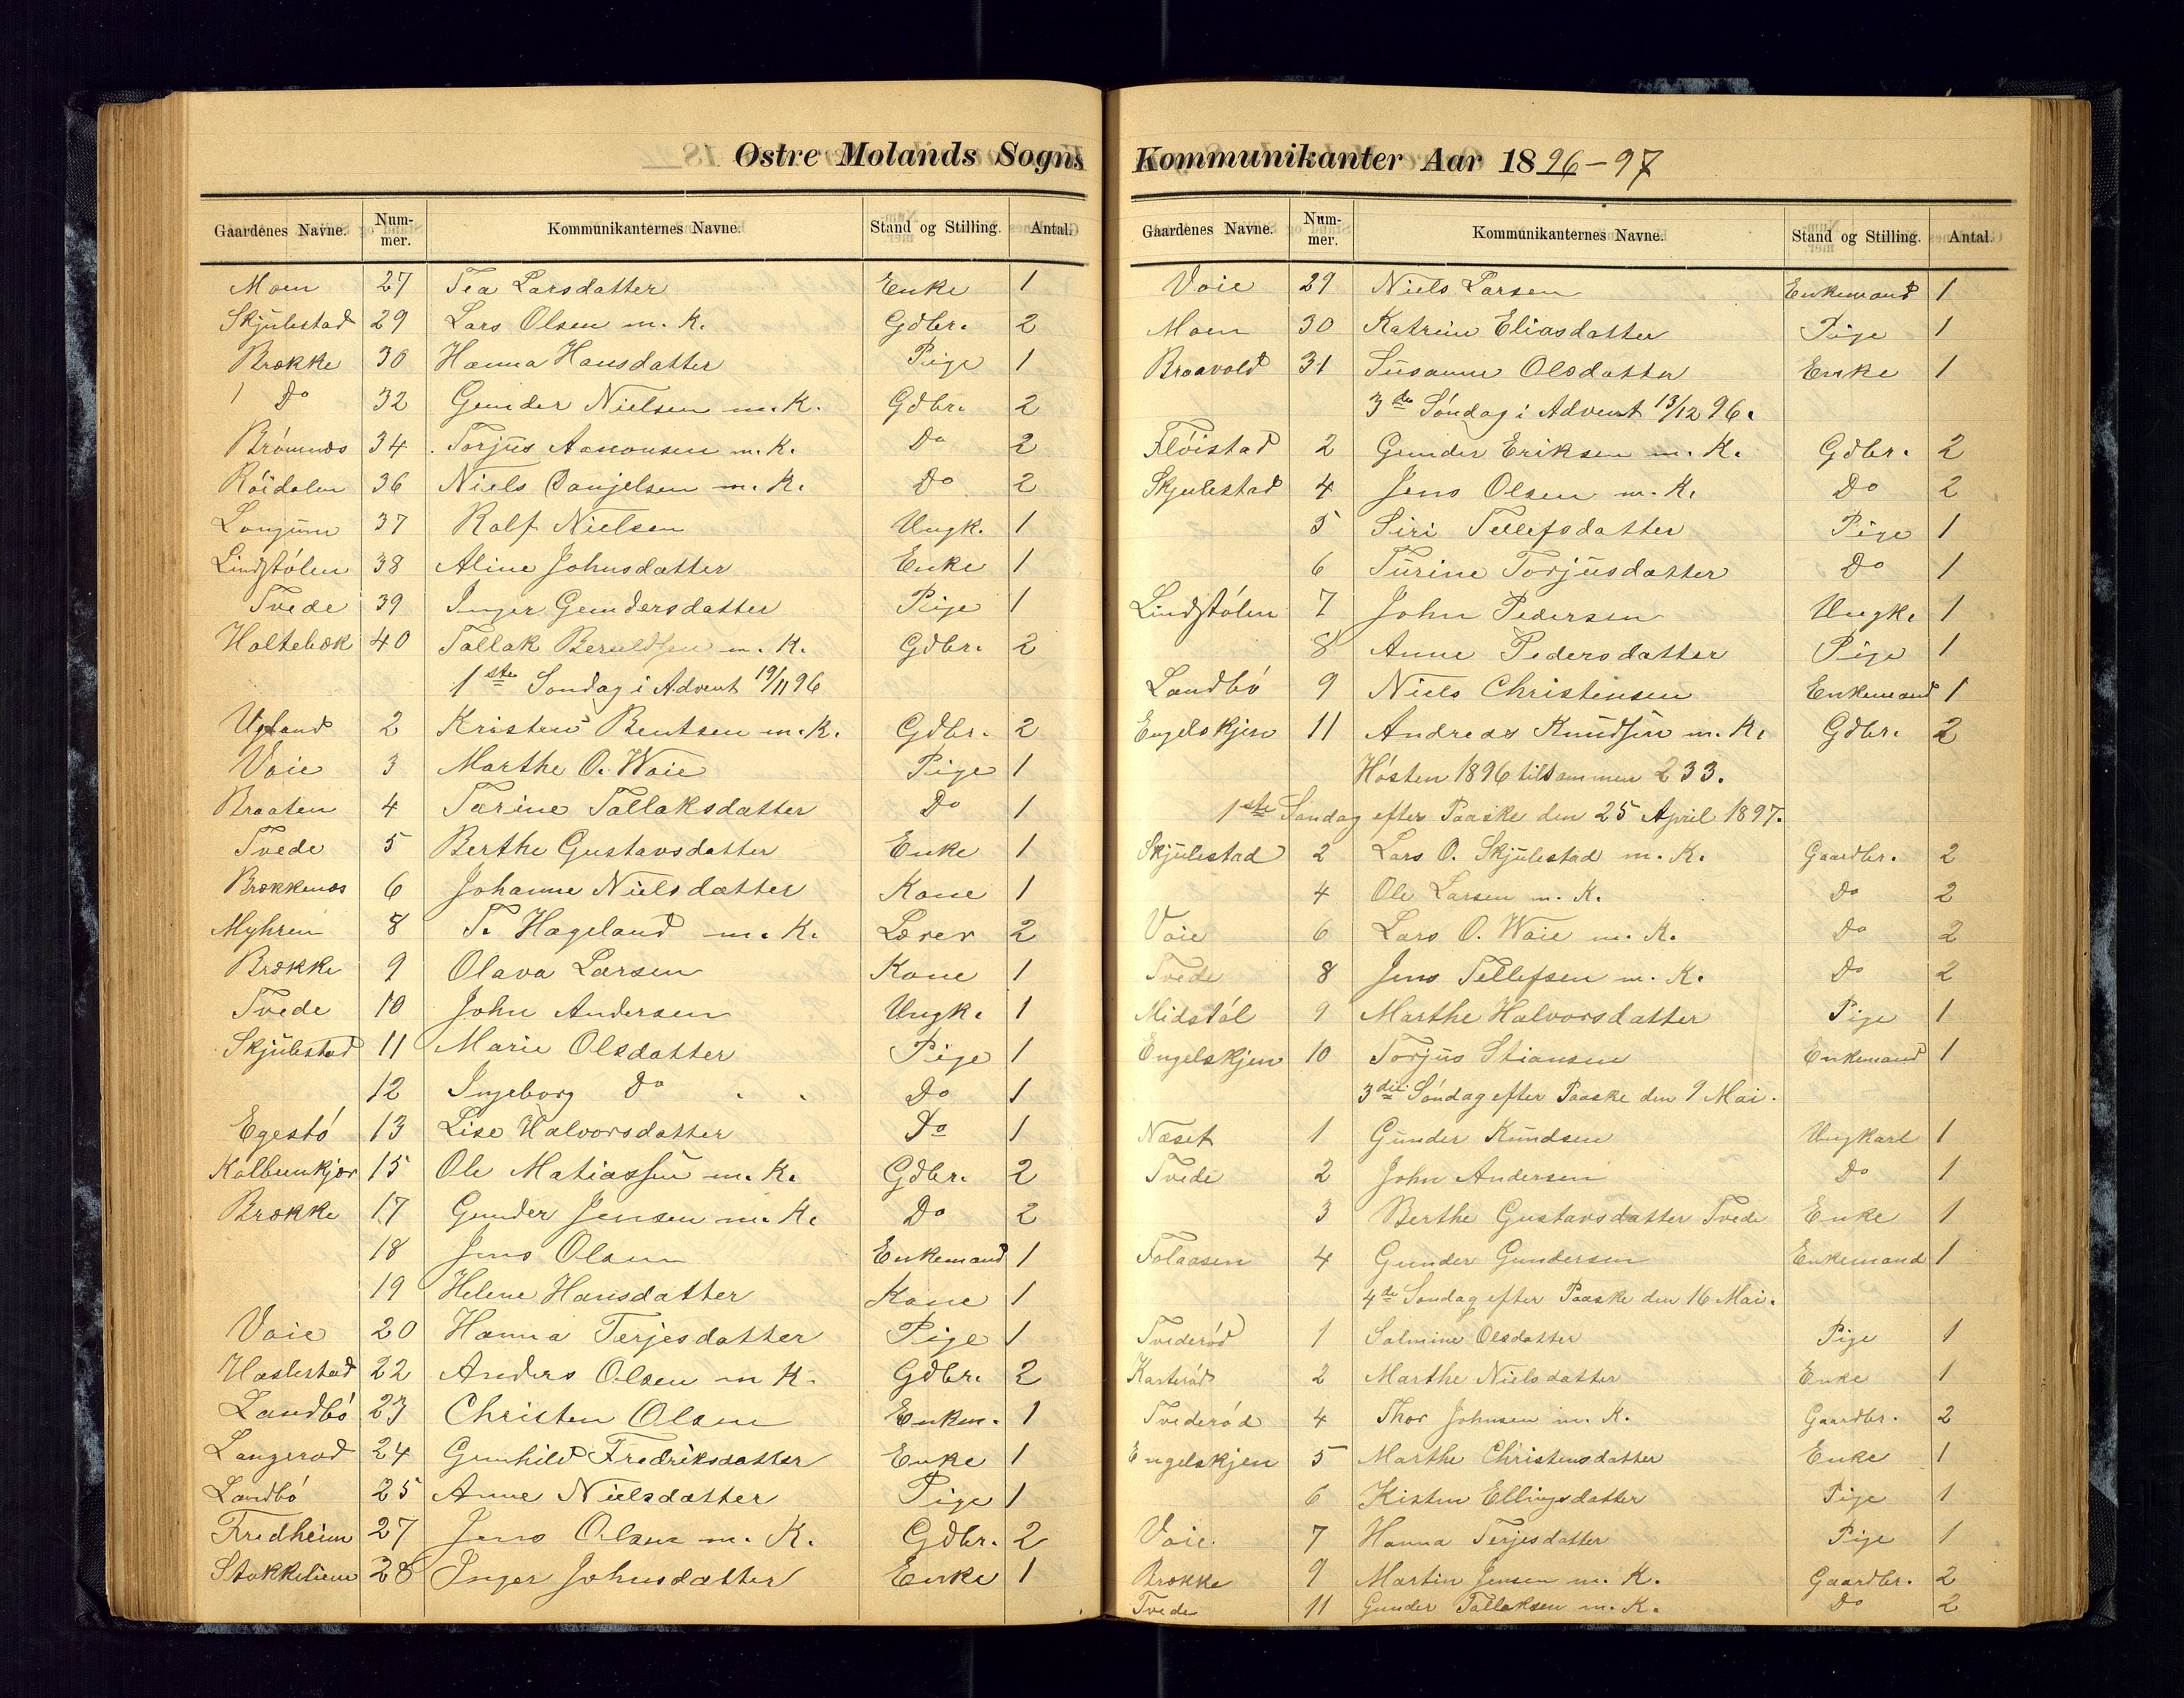 Østre Molands Sogns
Gaardenes Navne. Nummer. Kommunikanternes Navne. Stand og Stilling. Antal.
Moen 27 Tea Larsdatter Enke 1
Skjulestad 29 Lars Olsen m. K. Gdbr. 2
Brække 30 Hanna Hansdatter Pige 1
Do 32 Gunder Nielsen m. K. Gdbr. 2
34 Torjus Aanonsen m. K. Do 2
Röidalen 36 Niels Danjelsen m. K. Do 2
Longum 37 Rolf Nielsen Ungk. 1
Lindstölen 38 Aline Johnsdatter Enke 1
Tvede 39 Inger Gundersdatter Pige 1
Holtebæk 40 Tallak Beruldsen m. K. Gdbr. 2
1ste Søndag i Advent 19/11 96
Ugland 2 Kristen Bentsen m. K. Gdbr. 2
Voie 3 Marthe O. Woie Pige 1
Braaten 4 Tarine Tallaksdatter Do 1
Tvede 5 Berthe Gustavsdatter Enke 1
Brækkenæs 6 Johanne Nielsdatter Kone 1
Myhren 8 T. Hageland m. K. Lærer 2
Brække 9 Olava Larsen Kone 1
Tvede 10 John Andersen Ungk. 1
Skjulestad 11 Marie Olsdatter Pige 1
12 Ingeborg Do Do 1
Egestö 13 Lise Halvorsdatter Do 1
Kalbenkjær 15 Ole Matiassen m. K. Gdbr. 2
Brække 17 Gunder Jensen m. K. Do 2
18 Jens Olsen Enkemand 1
19 Helene Hansdatter Kone 1
Voie 20 Hanna Terjesdatter Pige 1
Haslestad 22 Anders Olsen m K. Gdbr. 2
Landbö 23 Christen Olsen Enkm. 1
Langerød 24 Gunhild Fredriksdatter Enke 1
Landbö 25 Anne Nielsdatter Pige 1
Fredheim 27 Jens Olsen m. K. Gdbr. 2
Stokkeliene 28 Inger Johnsdatter Enke 1
Kommunikanter Aar 1896-97
Gaardenes Navne. Nummer. Kommunikanternes Navne. Stand og Stilling. Antal.
Voie 29 Niels Larsen Enkemand 1
Moen 30 Katrine Eliasdatter Pige 1
Braavold 31 Susanne Olsdatter Enke 1
3de Söndag i Advent 13/12 96.
Flöistad 2 Gunder Eriksen m. K. Gdbr. 2
Skjulestad 4 Jens Olsen m. K. Do 2
5 Siri Tellefsdatter Pige 1
6 Turine Torjusdatter Do 1
Lindstölen 7 John Pedersen Ungk. 1
8 Anne Pedersdatter Pige 1
Landbö 9 Niels Christensen Enkemand 1
Engelskjen 11 Andreas Knudsen m. K. Gdbr. 2
Hösten 1896 tilsammen 233.
1ste Søndag efter Paaske den 25 April 1897.
Skjulestad 2 Lars O. Skjulestad m. K. Gaardbr. 2
4 Ole Larsen m. K. Do 2
Voie 6 Lars O. Woie m. K. Do 2
Tvede 8 Jens Tellefsen m. K. Do 2
Midstöl 9 Marthe Halvorsdatter Pige 1
Engelskjen 10 Torjus Stiansen Enkemand 1
3die Söndag efter Paaske den 9 Mai.
Næset 1 Gunder Knudsen Ungkarl 1
Tvede 2 John Andersen Do 1
3 Berthe Gustavsdatter Tvede Enke 1
Folaasen 4 Gunder Gundersen Enkemand 1
4de Søndag efter Paaske den 16 Mai.
Tvederöd 1 Salmine Olsdatter Pige 1
Karteröd 2 Marthe Nielsdatter Enke 1
Tvederöd 4 Thor Johnsen m. K. Gaardbr. 2
Engelskjen 5 Marthe Christensdatter Enke 1
6 Kisten Ellingsdatter Pige 1
Voie. 7 Hanna Terjesdatter Pige 1
Brække 9 Martin Jensen m. K. Gaardbr. 2
Tvede 11 Gunder Tallaksen m. K. Do 2